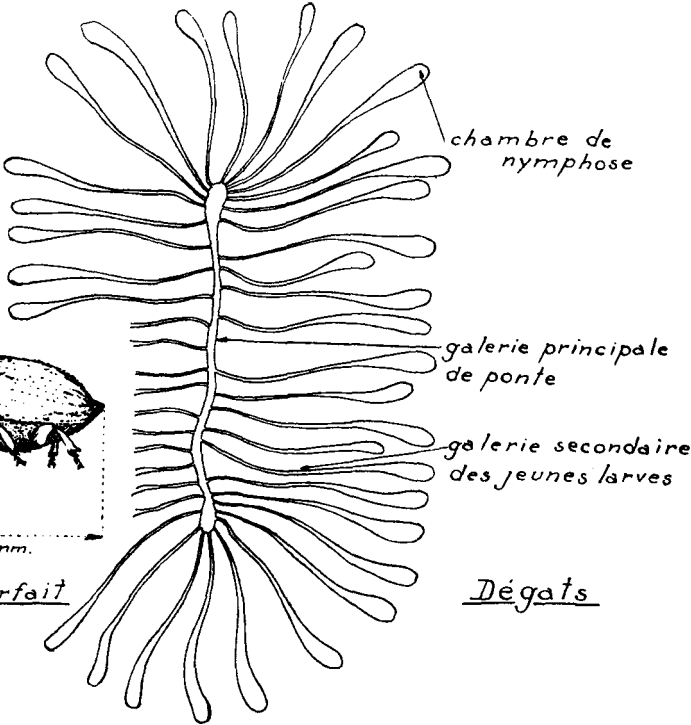 chambre de
nymphose
galerie principale
de ponte
galerie secondaire
des jeunes larves
mm.
rfait
Dégats